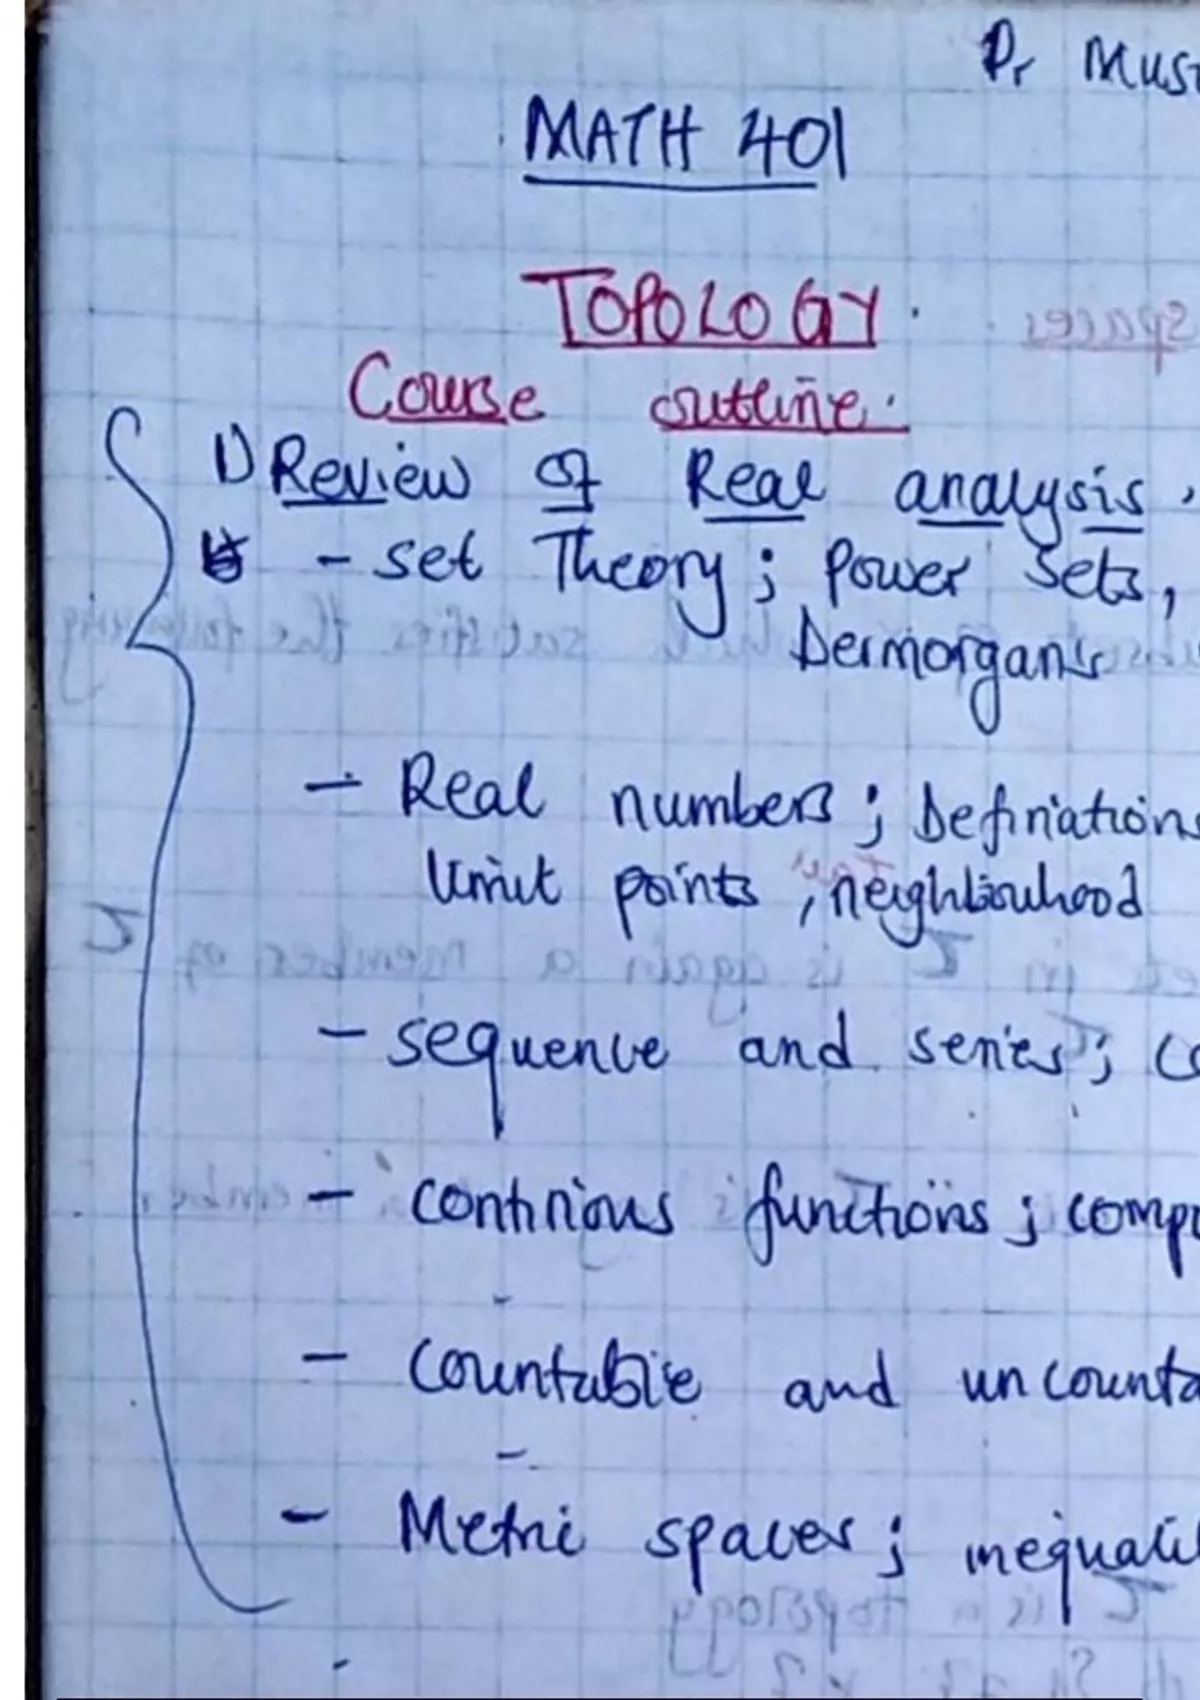 Dr Mus
MATH 401
TOPOLOGY.
Course outline.
1) Review of Real analysis.
- set Theory; Power sets,
Dermorgan's
- Real numbers; Definations
limit points, neighbourhood
- sequence and series; co
- continous functions; comp
- countable and uncounta
- Metric spaces; inequali